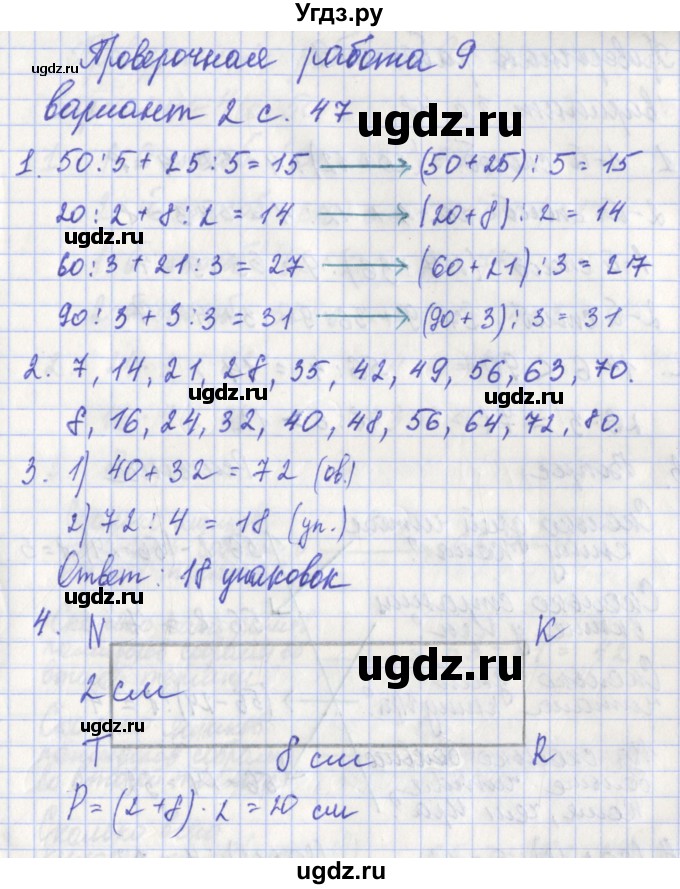 Угдз.ру
ugdz.ru
Проверочная работа 9
вариант 2 с. 47
ugdz.ru
1. 50:5 + 25:5 = 15 → (50+25):5 = 15
20:2 + 8:2 = 14 → (20+8):2 = 14
ugdz.ru ugdz.ru
60:3 + 21:3 = 27 → (60+21):3 = 27
90:3 + 3:3 = 31 → (90+3):3 = 31
2. 7, 14, 21, 28, 35, 42, 49, 56, 63, 70.
ugdz.ru ugdz.ru
8, 16, 24, 32, 40, 48, 56, 64, 72, 80.
3. 1) 40+32 = 72 (ов.)
ugdz.ru
2) 72:4 = 18 (уп.)
ugdz.ru
Ответ: 18 упаковок
4. N K
ugdz.ru
2 см
ugdz.ru
T 8 см R
ugdz.ru
P = (2+8)·2 = 20 см
ugdz.ru